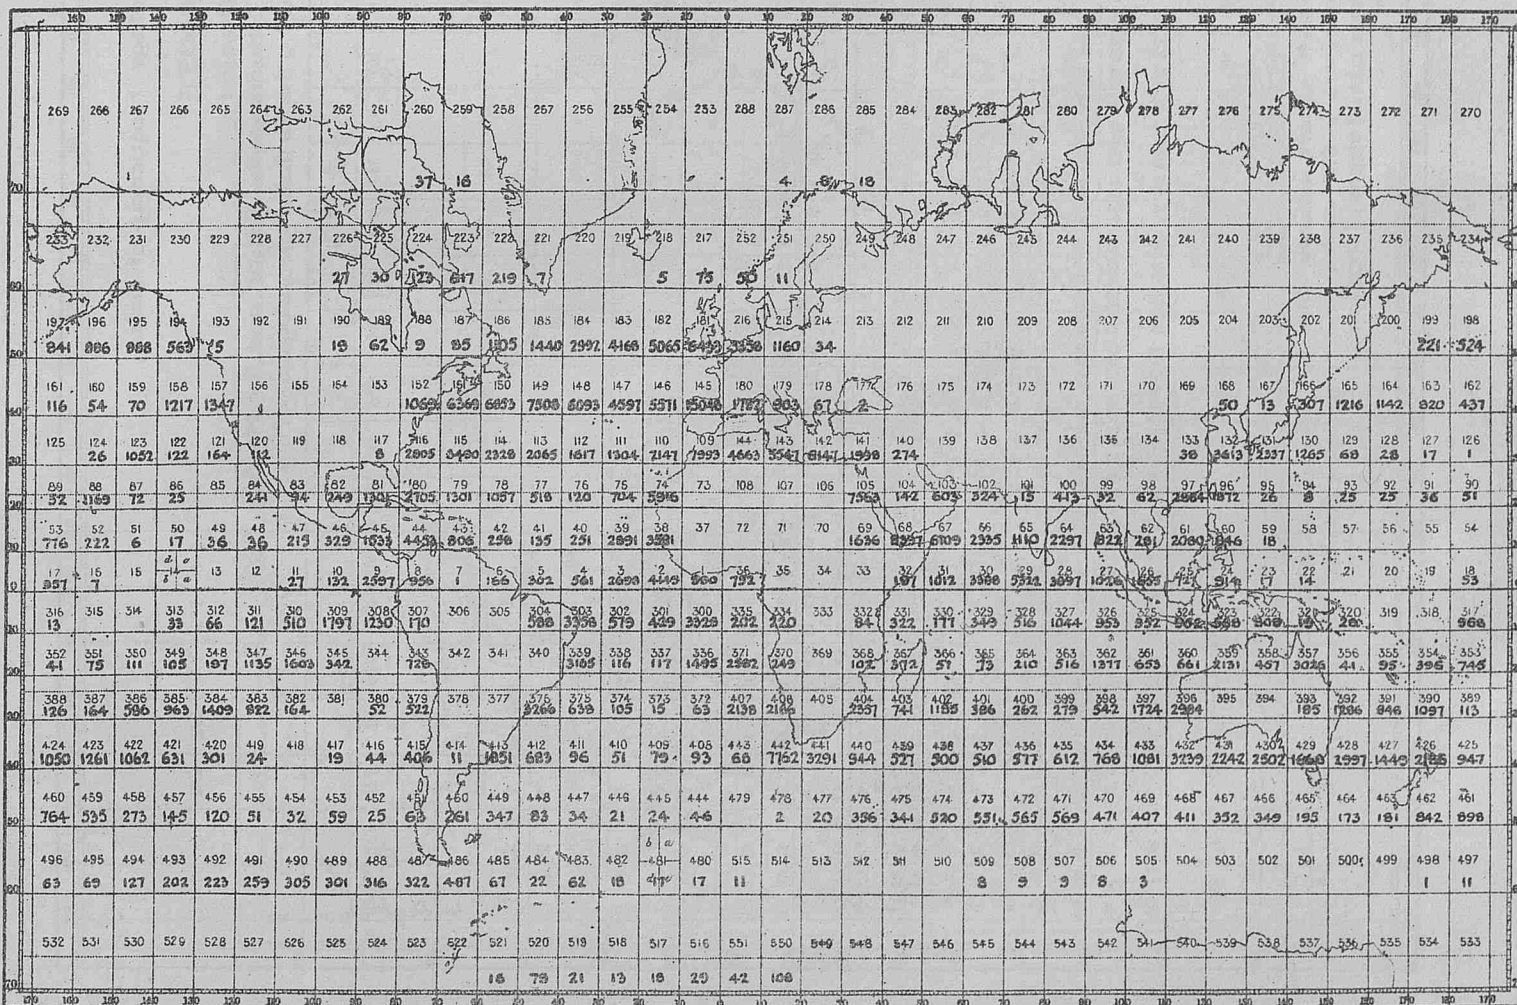 160 150 140 130 120 110 100 90 80 70 60 50 40 30 20 10 0 10 20 30 40 50 60 70 80 90 100 110 120 130 140 150 160 170 180 170
269 268 267 266 265 264 263 262 261 260 259 258 257 256 255 254 253 288 287 286 285 284 283 282 281 280 279 278 277 276 275 274 273 272 271 270
37 16 4 8 18
70
233 232 231 230 229 228 227 226 225 224 223 222 221 220 219 218 217 252 251 250 249 248 247 246 245 244 243 242 241 240 239 238 237 236 235 234
27 30 123 617 219 7 5 75 50 11
60
197 196 195 194 193 192 191 190 189 188 187 186 185 184 183 182 181 216 215 214 213 212 211 210 209 208 207 206 205 204 203 202 201 200 199 198
841 886 888 563 5 18 62 9 85 1105 1440 2992 4168 5065 1160 34 221 524
50
161 160 159 158 157 156 155 154 153 152 151 150 149 148 147 146 145 180 179 178 177 176 175 174 173 172 171 170 169 168 167 166 165 164 163 162
116 54 70 1217 1347 1069 6369 6853 7508 6093 4597 5571 903 67 2 50 13 307 1216 1142 820 437
40
125 124 123 122 121 120 119 118 117 116 115 114 113 112 111 110 109 144 143 142 141 140 139 138 137 136 135 134 133 132 131 130 129 128 127 126
26 1052 122 164 112 8 2805 3490 2328 2065 1617 1304 7147 7993 4663 5547 6147 1998 274 38 3613 2337 1265 68 28 17 1
30
89 88 87 86 85 84 83 82 81 80 79 78 77 76 75 74 73 108 107 106 105 104 103 102 101 100 99 98 97 96 95 94 93 92 91 90
52 1169 72 25 241 94 249 1301 2705 1301 1057 518 120 704 5916 7563 142 603 324 15 413 32 62 2864 1872 26 8 25 25 36 51
20
53 52 51 50 49 48 47 46 45 44 43 42 41 40 39 38 37 72 71 70 69 68 67 66 65 64 63 62 61 60 59 58 57 56 55 54
776 222 6 17 36 36 215 329 1533 4453 806 258 135 251 2891 3581 1636 8397 6109 2335 1110 2297 822 281 2080 1846 18
10
d c
17 16 15 14 13 12 11 10 9 8 7 6 5 4 3 2 1 36 35 34 33 32 31 30 29 28 27 26 25 24 23 22 21 20 19 18
b a
957 7 27 132 2597 956 1 166 302 561 2698 4149 560 792 197 1012 3388 5322 3097 914 17 14 53
0
316 315 314 313 312 311 310 309 308 307 306 305 304 303 302 301 300 335 334 333 332 331 330 329 328 327 326 325 324 323 322 321 320 319 318 317
13 33 66 121 510 1797 1230 170 588 3358 579 429 3329 202 220 84 322 177 349 516 1044 953 952 28 968
10
352 351 350 349 348 347 346 345 344 343 342 341 340 339 338 337 336 371 370 369 368 367 366 365 364 363 362 361 360 359 358 357 356 355 354 353
41 75 111 105 197 1135 1603 342 726 3185 116 117 1495 2582 249 102 372 57 73 210 516 1377 653 661 2131 457 3026 41 95 396 745
20
388 387 386 385 384 383 382 381 380 379 378 377 376 375 374 373 372 407 406 405 404 403 402 401 400 399 398 397 396 395 394 393 392 391 390 389
126 164 586 963 1409 822 164 52 522 3266 638 105 15 63 2138 2166 2357 741 1185 386 262 279 542 1724 2984 185 1286 846 1097 113
30
424 423 422 421 420 419 418 417 416 415 414 413 412 411 410 409 408 443 442 441 440 439 438 437 436 435 434 433 432 431 430 429 428 427 426 425
1050 1261 1062 631 301 24 19 44 406 11 1851 683 96 51 79 93 68 7762 3291 944 527 500 510 577 612 768 1081 3239 2242 2502 1668 2997 1449 2186 947
40
460 459 458 457 456 455 454 453 452 451 450 449 448 447 446 445 444 479 478 477 476 475 474 473 472 471 470 469 468 467 466 465 464 463 462 461
764 535 273 145 120 51 32 59 25 63 261 347 83 34 21 24 46 2 20 356 341 520 551 565 569 471 407 411 352 349 195 173 181 842 898
50
b a
496 495 494 493 492 491 490 489 488 487 486 485 484 483 482 481 480 515 514 513 512 511 510 509 508 507 506 505 504 503 502 501 500 499 498 497
d c
63 69 127 202 223 259 305 301 316 322 487 67 22 62 18 17 17 11 8 9 9 8 3 1 11
60
532 531 530 529 528 527 526 525 524 523 522 521 520 519 518 517 516 551 550 549 548 547 546 545 544 543 542 541 540 539 538 537 536 535 534 533
18 79 21 13 18 29 42 108
70
170 160 150 140 130 120 110 100 90 80 70 60 50 40 30 20 10 0 10 20 30 40 50 60 70 80 90 100 110 120 130 140 150 160 170 180 170